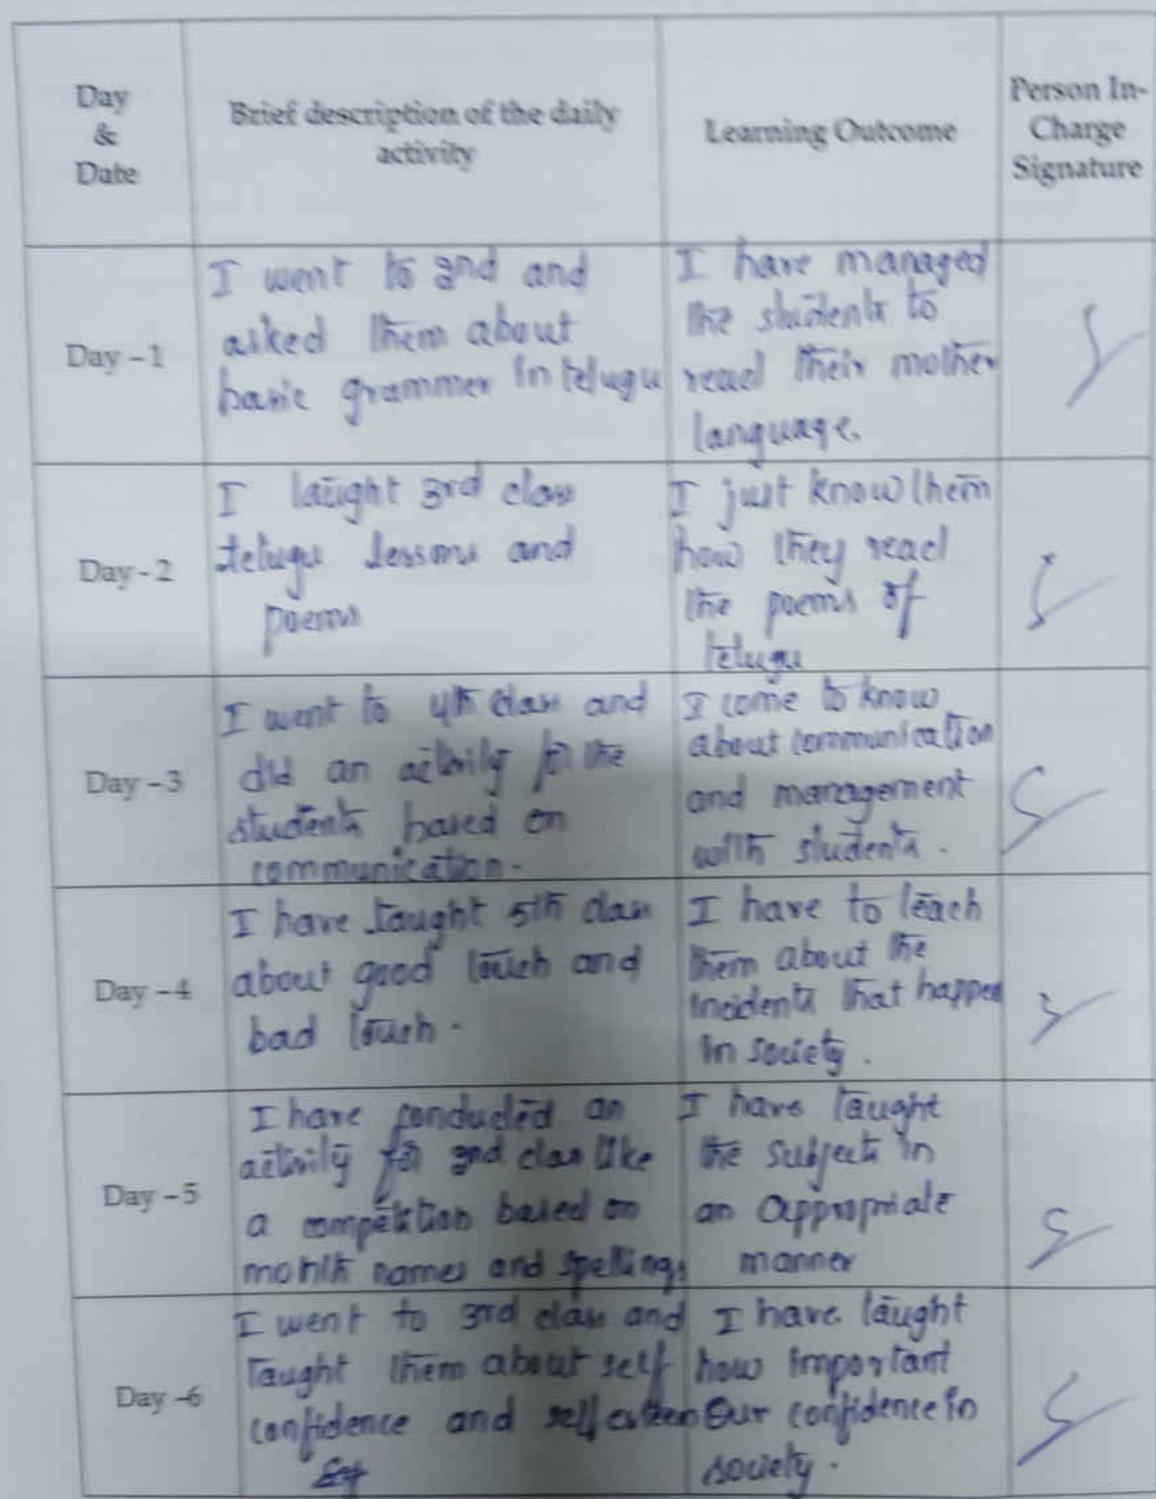 Day
&
Date
Brief description of the daily
activity
Learning Outcome
Person In-
Charge
Signature
Day - 1
I went to 2nd and
asked them about
basic grammer in telugu
I have managed
the students to
read their mother
language.
Day - 2
I taught 3rd class
telugu lessons and
poems
I just know them
how they read
the poems of
telugu
Day - 3
I went to 4th class and
did an activity for the
students based on
communication.
I come to know
about communication
and management
with students.
Day - 4
I have taught 5th class
about good touch and
bad touch.
I have to teach
them about the
incidents that happen
in society.
Day - 5
I have conducted an
activity for 2nd class like
a competition based on
month names and spellings
I have taught
the subject in
an appropriate
manner
Day -6
I went to 3rd class and
taught them about self
confidence and self esteem
I have taught
how important
our confidence in
society.